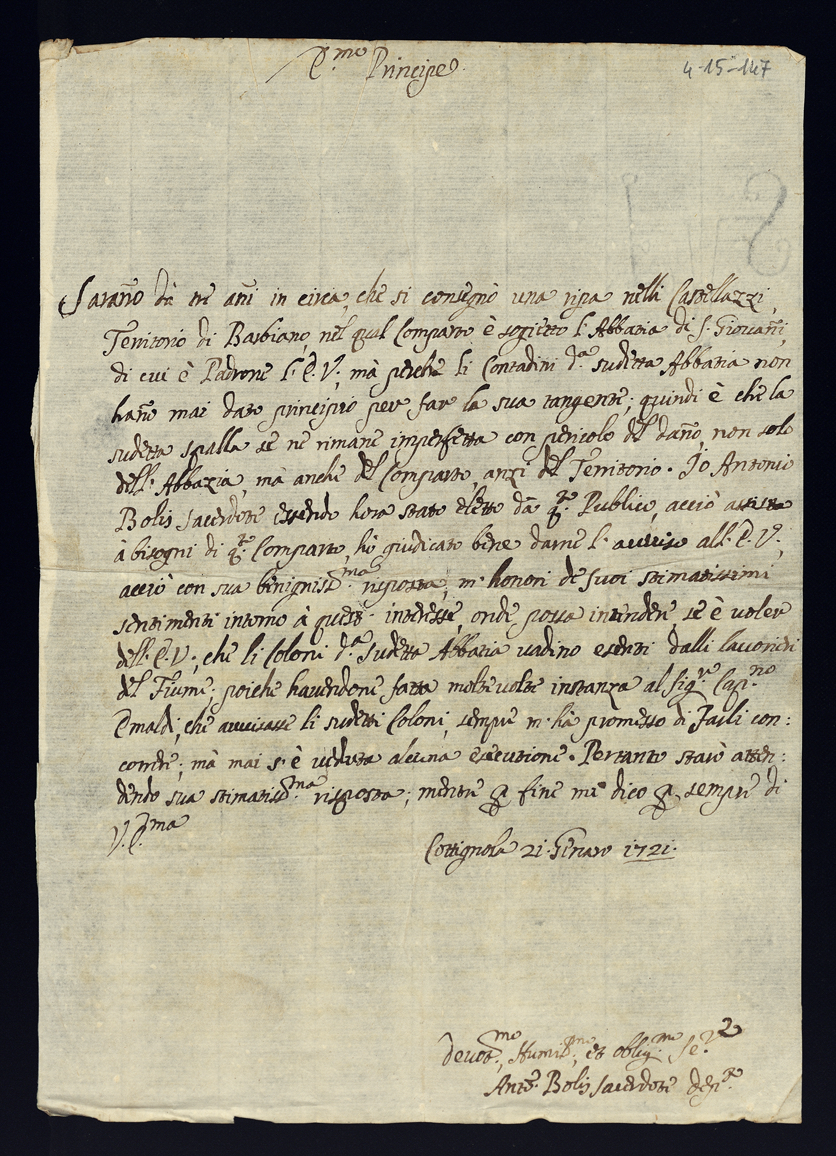 E.mo Principe
4-15-147
Saran̄o da tre an̄i in circa, che si consegnò una ripa nelli Castellazzi,
Territorio di Barbiano, nel qual Comparto è sogietto l'Abbatia di S. Giovan̄i,
di cui è Padrone l'E.V.; mà perche li Contadini d.a sudetta Abbatia non
han̄o mai dato principio per far la sua tangente; quindi è che la
sudetta spalla se ne rimane imperfetta con pericolo del dan̄o, non solo
dell'Abbazia, mà anche del Comparto, anzi del Territorio. Io Antonio
Bolis Sacerdote essendo hora stato eletto dà q.to Publico, acciò assista
à bisogni di q.to Comparto, hò giudicato bene darne l'avviso all'E.V.,
acciò con sua benignis.ma risposta, m'honori de suoi stimatissimi
sentimenti intorno à quest'interesse, onde possa intendere se è voler
dell'E.V., che li Coloni d.a sudetta Abbatia vadino esenti dalli lavorieri
del Fiume; poiche havendone fatta molte volte instanza al Sig.re Cap.no
Emaldi, che avvisasse li sudetti Coloni, sempre m'hà promesso di farli con:
correre; mà mai s'è veduta alcuna esecutione. Pertanto starò atten:
dendo sua stimatiss.ma risposta; mentre p fine mi dico p sempre di
V.E.ma
Cottignola 21. Genaro 1721.
devot.mo, Humil.mo, et oblig.mo Se.re
Ant.o Bolis Sacerdote dep.to